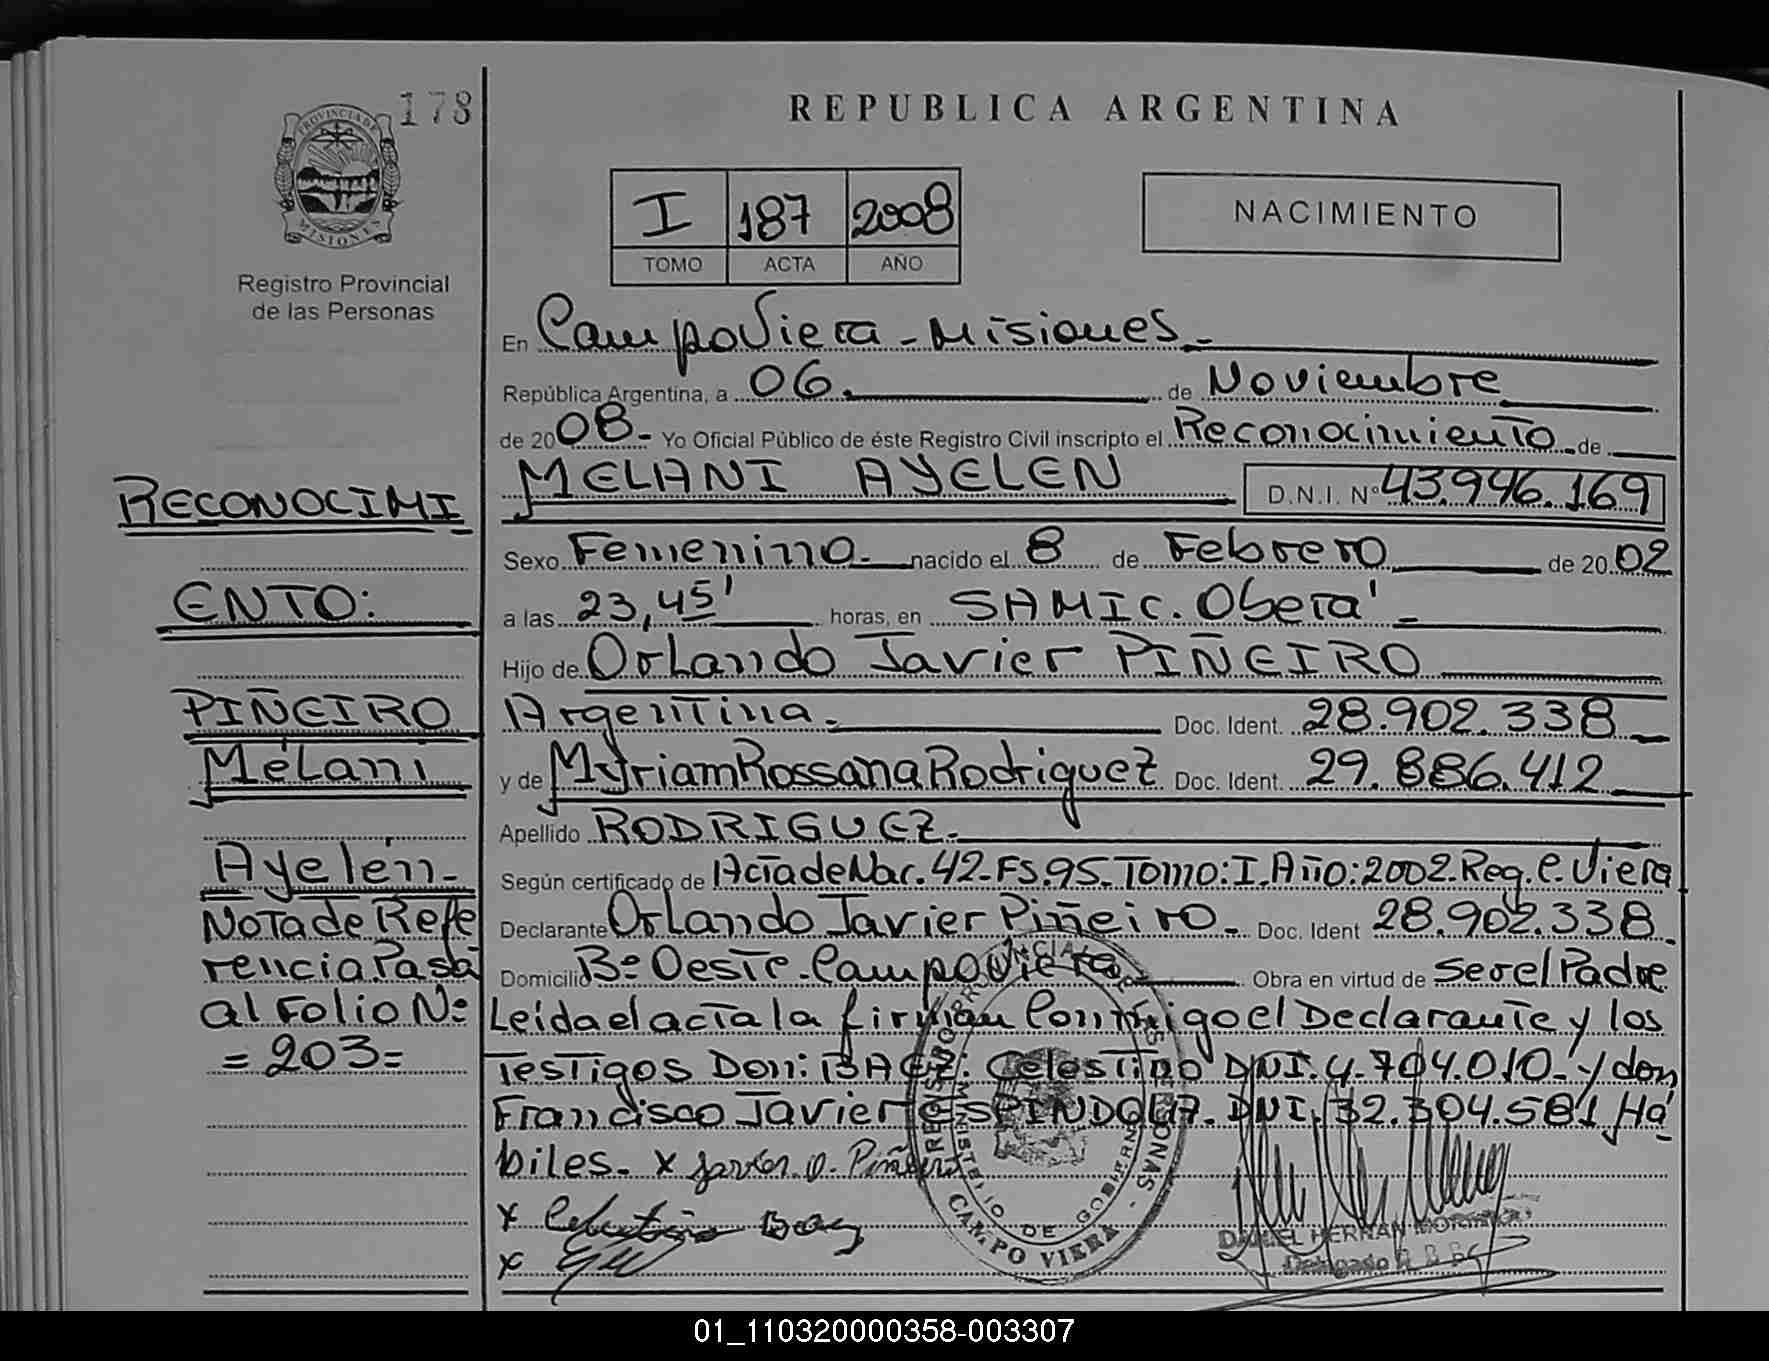 178
PROVINCIA DE
MISIONES
Registro Provincial
de las Personas
REPUBLICA ARGENTINA
I 187 2008
TOMO ACTA AÑO
NACIMIENTO
En Campo Viera - Misiones -
República Argentina, a 06. de Noviembre
de 2008 - Yo Oficial Público de éste Registro Civil inscripto el Reconocimiento de
MELANI AYELEN D.N.I. Nº 43.946.169
Sexo Femenino nacido el 8 de Febrero de 2002
a las 23,45' horas, en SAMIC. Oberá -
Hijo de Orlando Javier PIÑEIRO
Argentina. Doc. Ident. 28.902.338
y de Myriam Rossana Rodriguez Doc. Ident. 29.886.412
Apellido RODRIGUEZ.
Según certificado de Acta de Nac. 42-FS.95. Tomo: I. Año: 2002. Reg. C. Viera
Declarante Orlando Javier Piñeiro. Doc. Ident 28.902.338.
Domicilio Bº Oeste - Campo Viera Obra en virtud de ser el Padre
Leída el acta la firman Conmigo el Declarante y los
Testigos Don: BAEZ: Celestino DNI. 4.704.010 - y don
Francisco Javier ESPINDOLA. DNI. 32.304.581 Há
biles. x Javier O. Piñeiro
x Celestino Baez
x
RECONOCIMI
ENTO:
PIÑEIRO
Mélani
Ayelén -
Nota de Refe
rencia Pasa
al Folio Nº
= 203 =
REGISTRO PROVINCIAL DE LAS PERSONAS -
MINISTERIO DE GOBIERNO
CAMPO VIERA
DANIEL HERNAN
Delegado
01_110320000358-003307